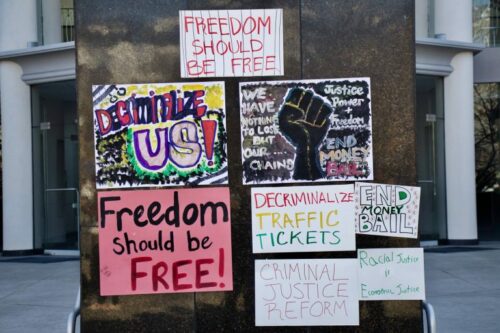 FREEDOM
SHOULD
BE FREE
DECRIMINALIZE
US!
WE
HAVE
NOTHING
TO LOSE
BUT
OUR...
CHAINS
Justice
Power +
Freedom
END
MONEY
BAIL
Freedom
should be
FREE!
DECRIMINALIZE
TRAFFIC
TICKETS
END
MONEY
BAIL
CRIMINAL
JUSTICE
REFORM
Racial Justice
is
Economic Justice